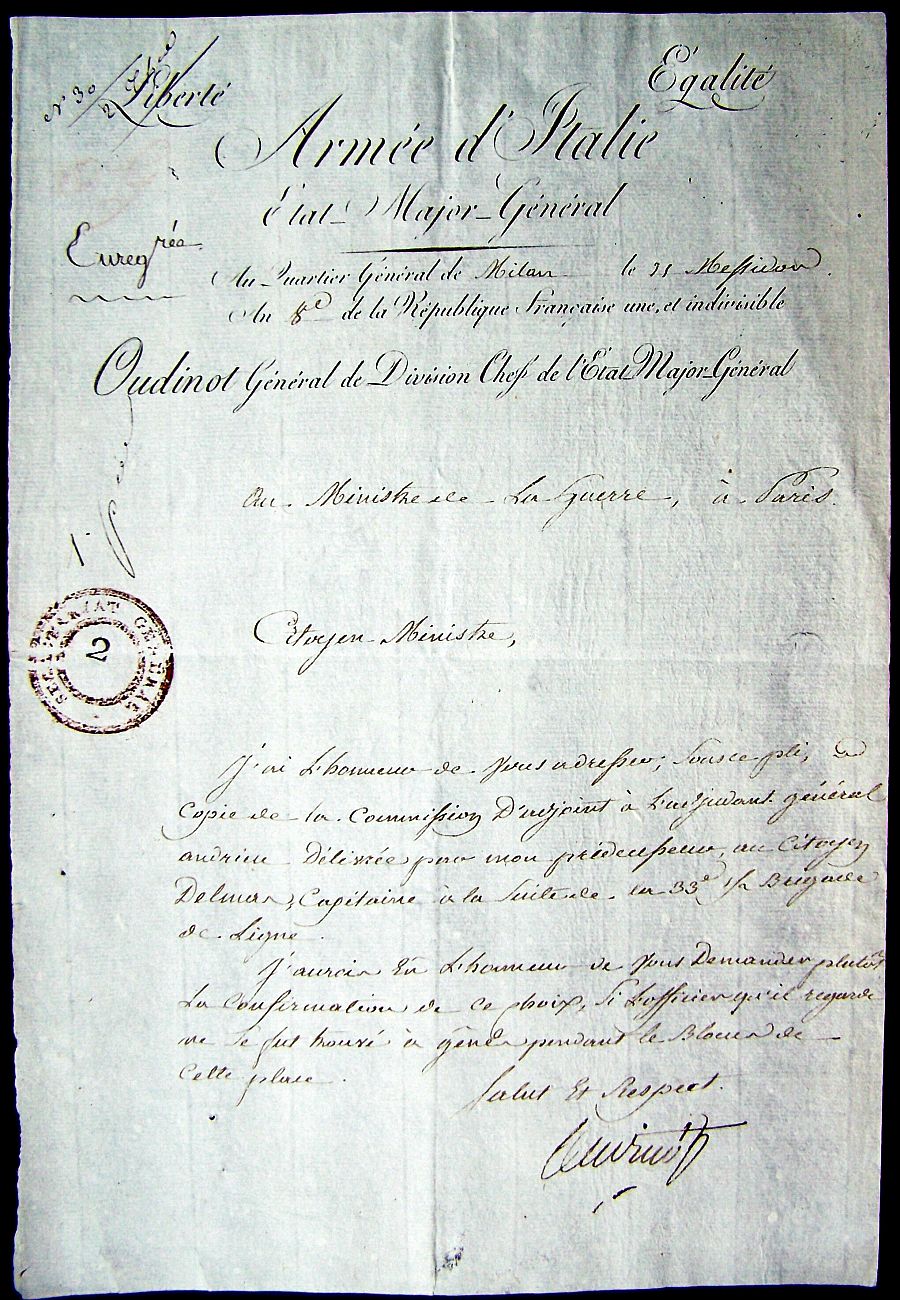 N° 30
Liberté
Egalité
Armée d'Italie
État-Major-Général
Enreg rée
Au Quartier Général de Milan le 25 Messidor.
An 8e de la République Française une, et indivisible
Oudinot Général de Division Chef de l'État-Major-Général
Au Ministre de La Guerre, à Paris.
SECRÉTARIAT GÉNÉRAL
2
Citoyen Ministre,
J'ai L'honneur de Vous adresser, Sous ce pli, La
Copie de la Commission D'adjoint à L'adjudant général
andrieu Délivrée par mon prédécesseur, au Citoyen
Delmas, Capitaine à la Suite de la 33e 1/2 Brigade
de Ligne.
J'aurais Eu L'honneur de Vous Demander plutôt
La Confirmation de ce choix, Si L'officier qu'il regarde
ne se fut trouvé à gênes pendant le Blocus de
Cette place.
Salut Et Respect.
Oudinot